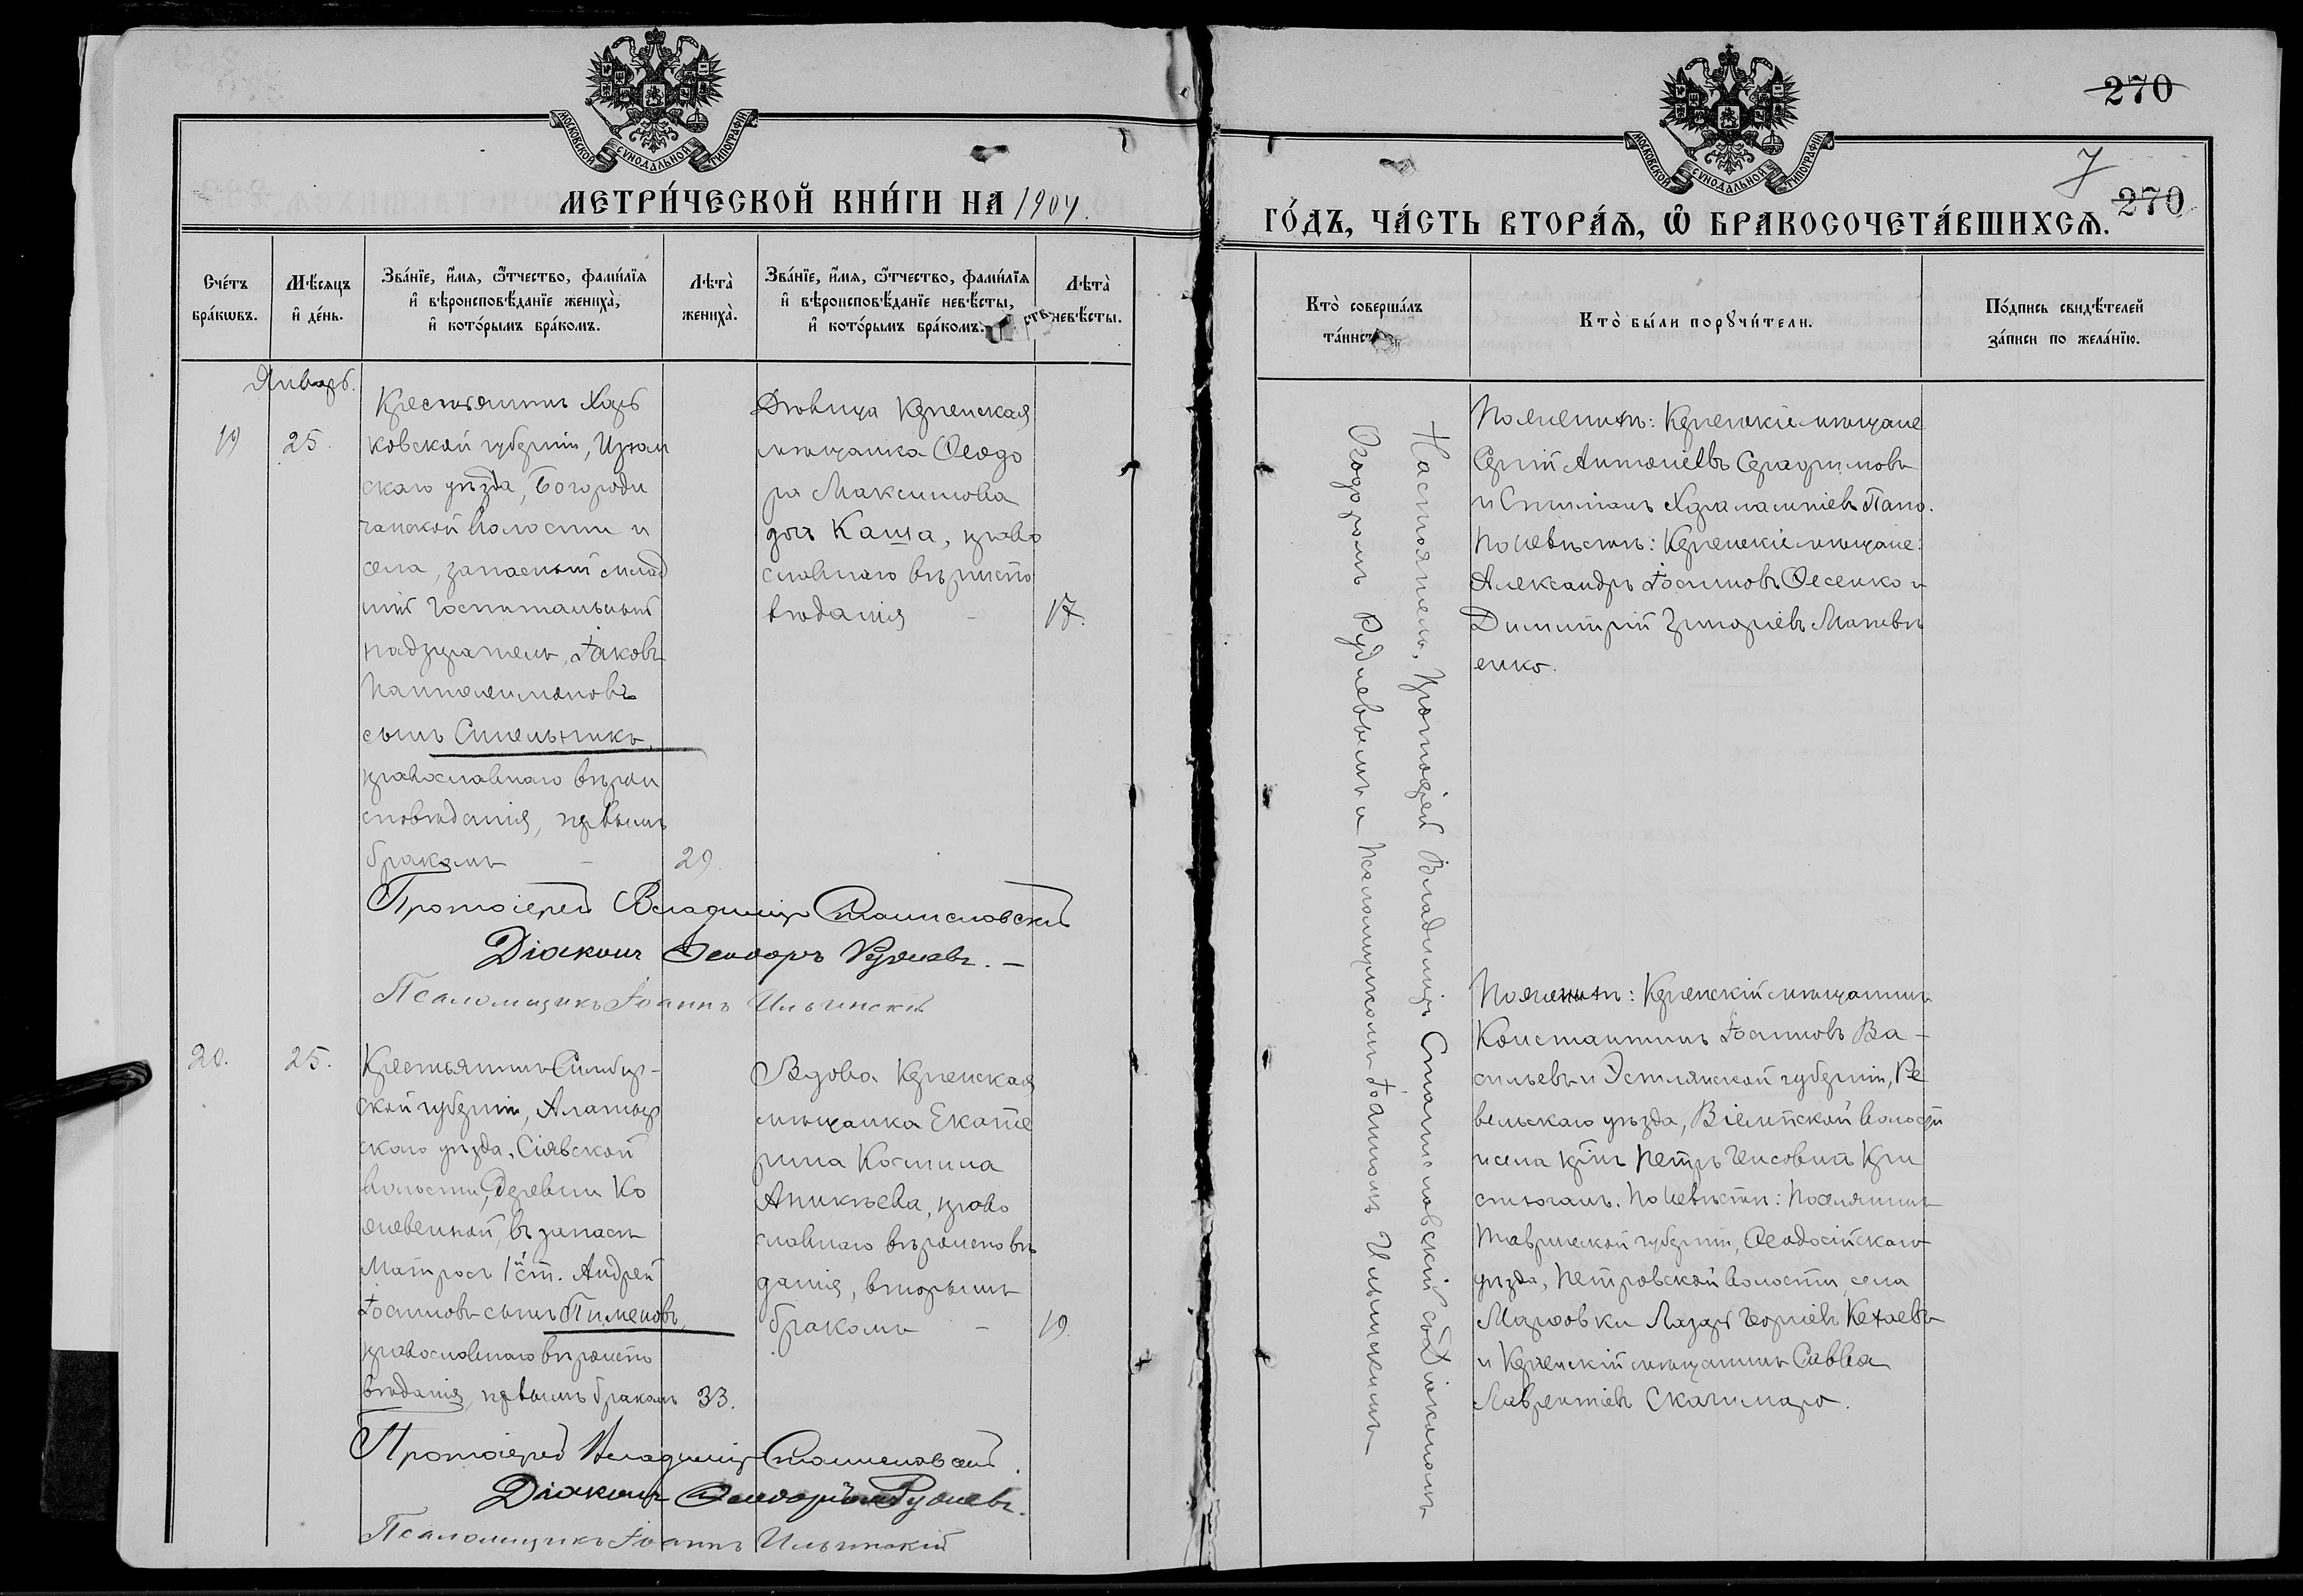 МОСКОВСКОЙ СѴНОДАЛЬНОЙ ТИПОГРАФІИ
МЕТРИ́ЧЕСКОЙ КНИ́ГИ НА 1904.
Сче́тъ бра́кѡвъ.
Мѣ́сяцъ и҆ де́нь.
Зва́нїе, и҆́мя, ѻ҆́тчество, фами́лїя
и҆ вѣроисповѣ́данїе жениха̀,
и҆ кото́рымъ бра́комъ.
Лѣта̀ жениха̀.
Зва́нїе, и҆́мя, ѻ҆́тчество, фами́лїя
и҆ вѣроисповѣ́данїе невѣ́сты,
и҆ кото́рымъ бра́комъ.
Лѣта̀ невѣ́сты.
Январь.
19
25.
Крестьянинъ Харь
ковской губерніи, Изюм
скаго уѣзда, Богороди
чанской волости и
села, запасный млад
шій госпитальный
надзиратель, Іаковъ
Пантелеимоновъ
сынъ Синельникъ,
православнаго вѣрои
сповѣданія, первымъ
бракомъ –
29.
Дѣвица Керченская
мѣщанка Ѳеодо
ра Максимова
дочь Каша, право
славнаго вѣроиспо
вѣданія –
17.
Протоіерей Владиміръ Станиславскій
Діаконъ Ѳеодоръ Рудневъ. –
Псаломщикъ Іоаннъ Ильчинскій
20.
25.
Крестьянинъ Симбир-
ской губерніи, Алатыр
скаго уѣзда, Сіявской
волости, деревни Ко
жевенной, въ запасѣ
матросъ 1й ст. Андрей
Іоанновъ сынъ Пименовъ,
православнаго вѣроиспо
вѣданія, первымъ бракомъ
33.
Вдова Керченская
мѣщанка Екате
рина Косьмина
Аникѣева, право
славнаго вѣроисповѣ
данія, вторымъ
бракомъ –
19.
Протоіерей Владиміръ Станиславскій.
Діаконъ Ѳеодоръ Рудневъ.
Псаломщикъ Іоаннъ Ильчинскій
270
МОСКОВСКОЙ СѴНОДАЛЬНОЙ ТИПОГРАФІИ
7
270
ГО́ДЪ, ЧА́СТЬ ВТОРА́Ѧ, Ѽ БРАКОСОЧЕТА́ВШИХСѦ.
Кто̀ соверша́лъ
Кто̀ бы́ли порꙋчи́тели.
По́дпись свидѣ́телей
за́писи по жела́нїю.
Настоятель, Протоіерей Владиміръ Станиславскій съ Діакономъ
Ѳеодоромъ Рудневымъ и Псаломщикомъ Іоанномъ Ильчинскимъ
По женихѣ: Керченскіе мѣщане
Сергій Антоніевъ Серафимовъ
и Стиліанъ Харалампіевъ Папо.
По невѣстѣ: Керченскіе мѣщане:
Александръ Іоанновъ Ѳесенко и
Димитрій Григоріевъ Матвѣ
енко.
По женихѣ: Керченскій мѣщанинъ
Константинъ Іоанновъ Ва-
сильевъ и Эстлянской губерніи, Ре
вельскаго уѣзда, волости
и села кр-нъ Петръ Кри
По невѣстѣ: поселянинъ
Таврической губерніи, Ѳеодосійскаго
уѣзда, Петровской волости, села
Марфовки Лазарь Георгіевъ Кехаевъ
и Керченскій мѣщанинъ Савва
Лаврентіевъ